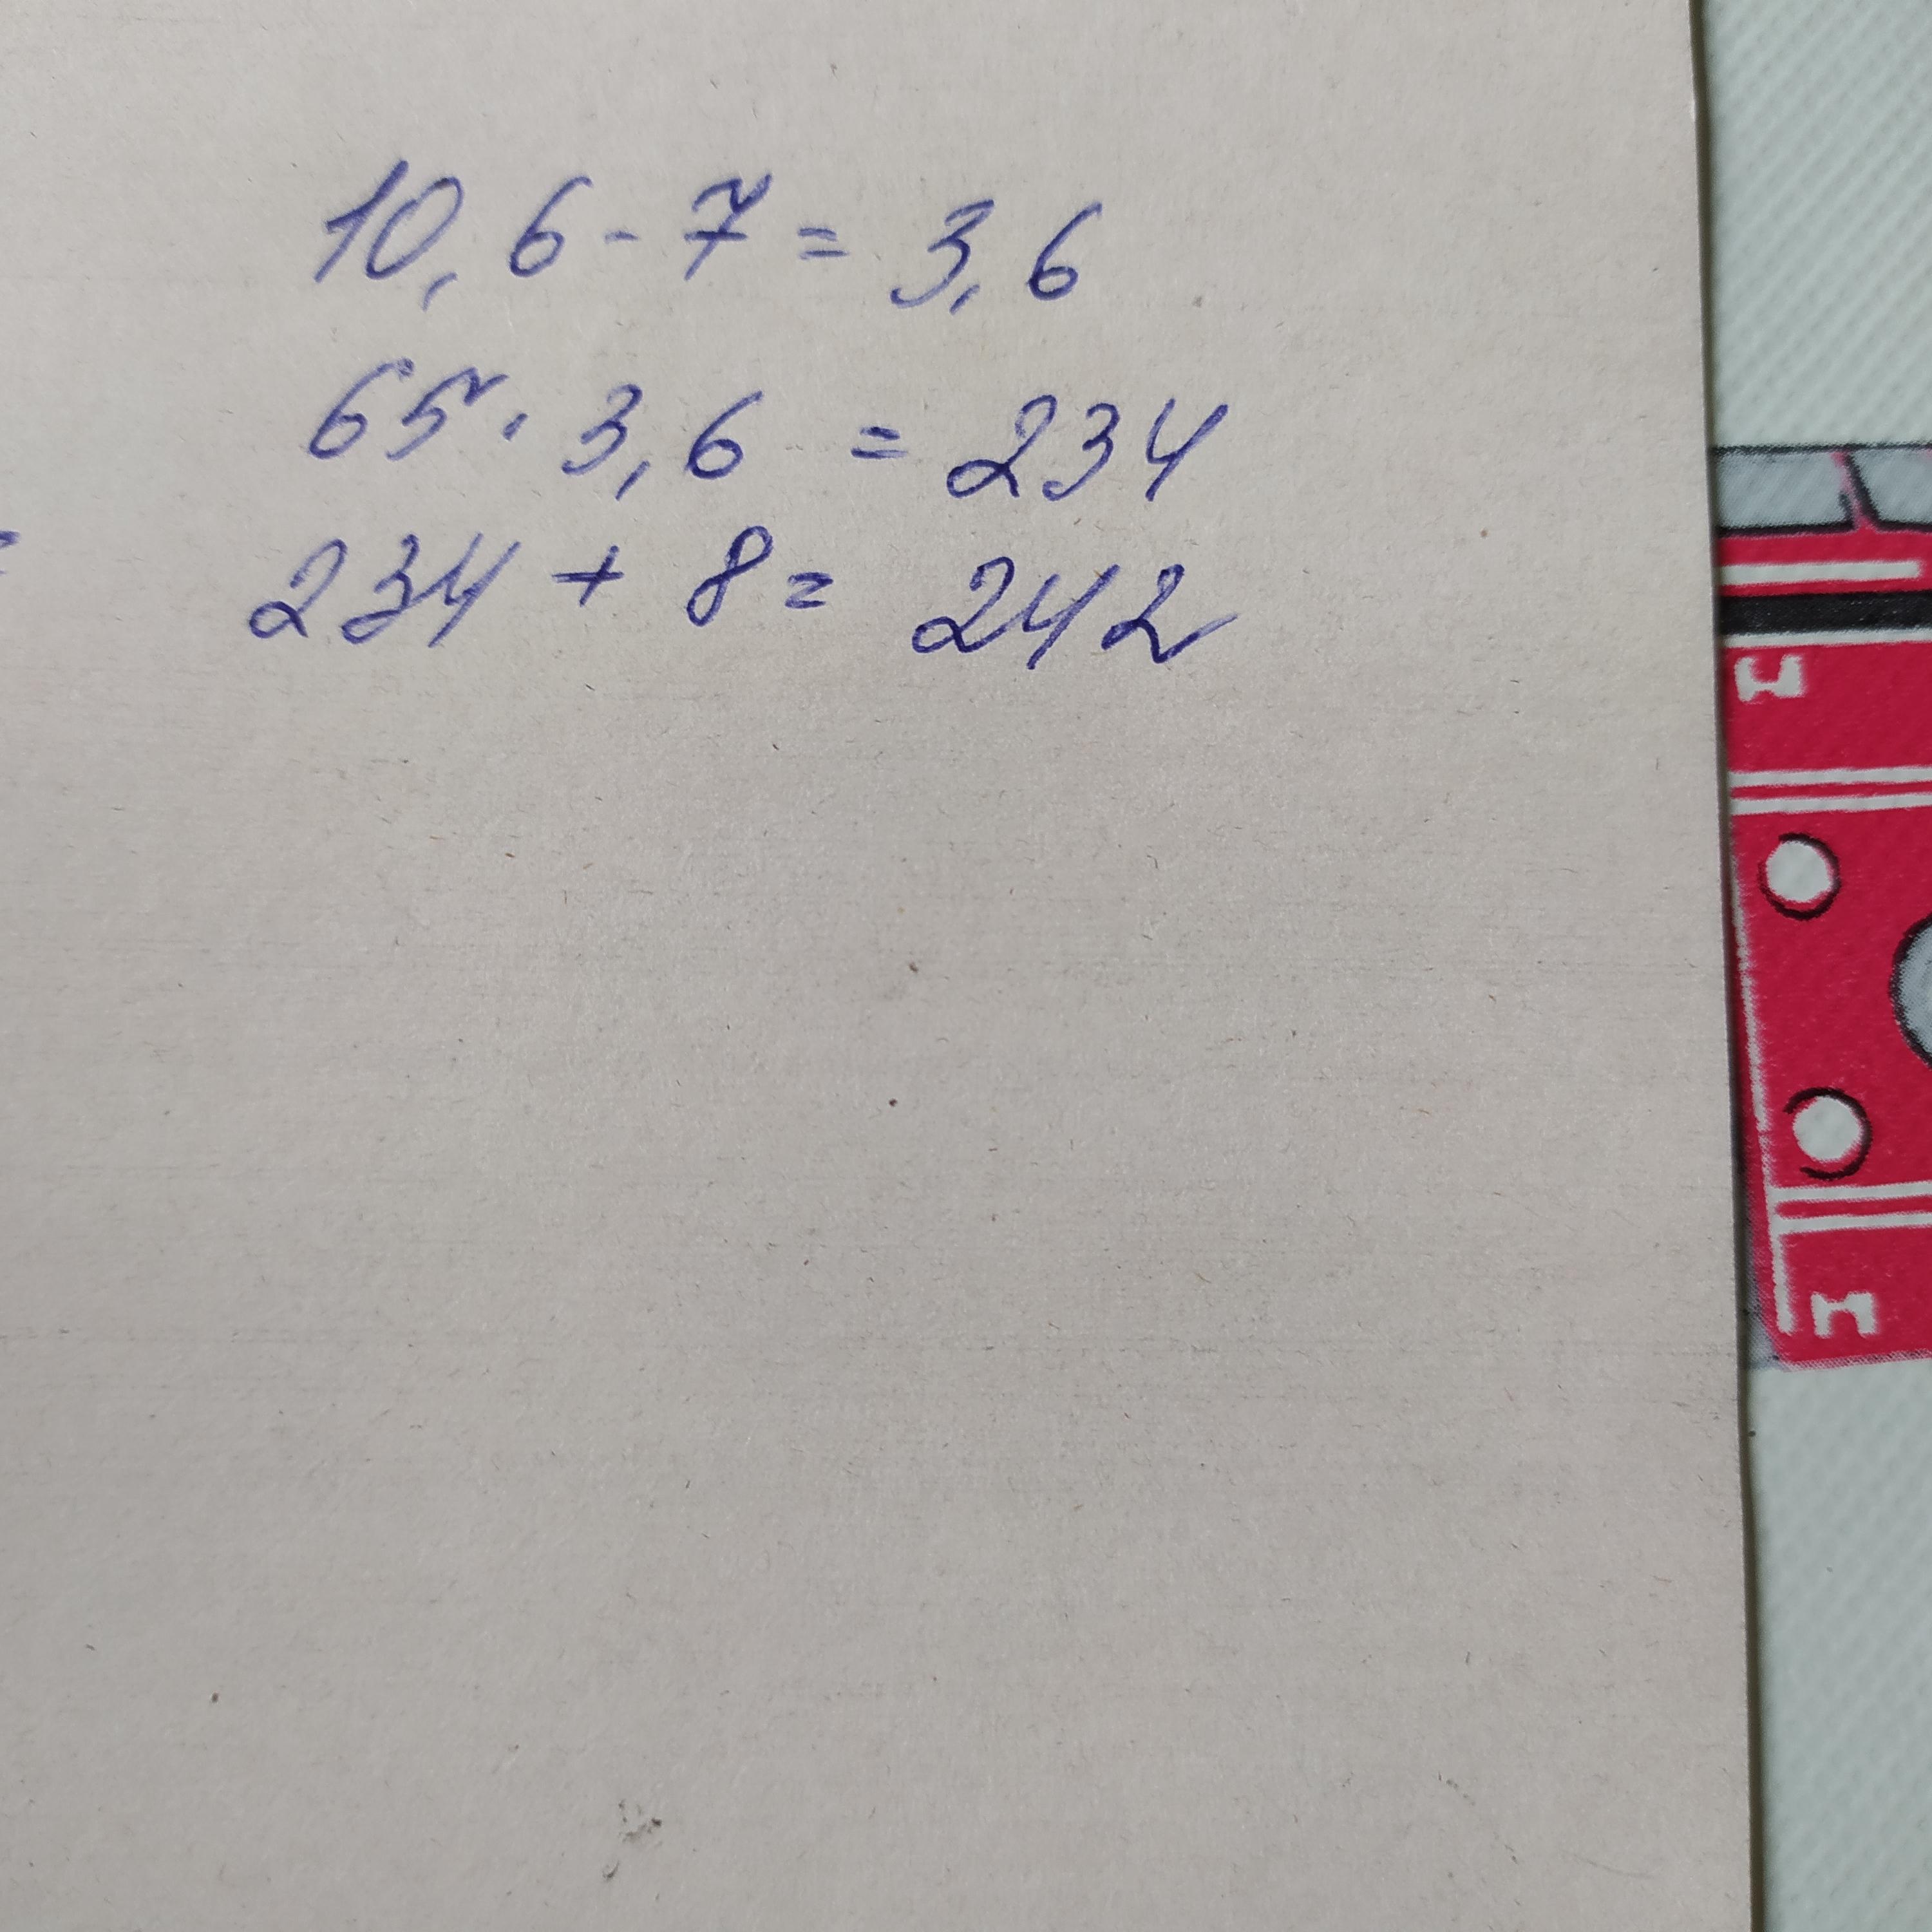 10,6 - 7 = 3,6
65 · 3,6 = 234
234 + 8 = 242